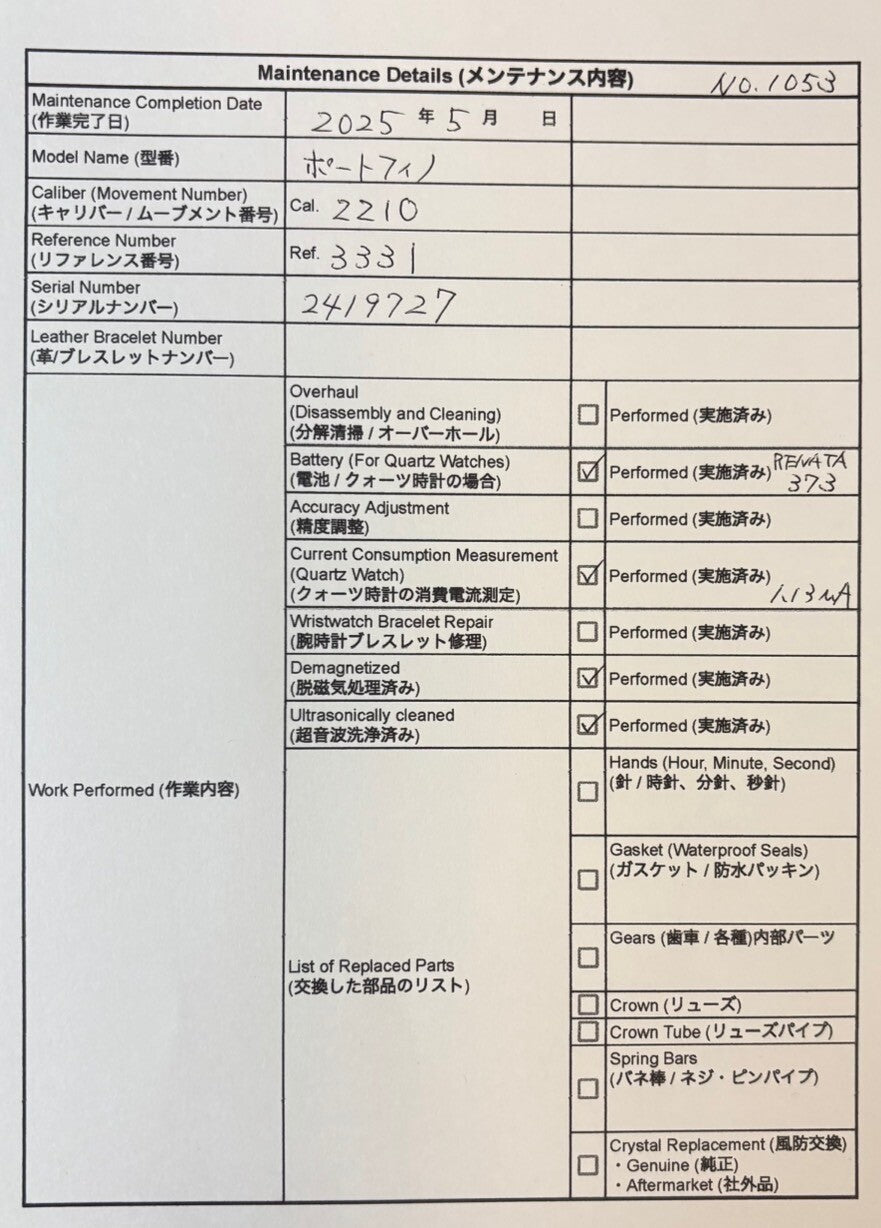 Maintenance Details (メンテナンス内容) NO.1053
Maintenance Completion Date
(作業完了日)
2025 年 5 月 日
Model Name (型番)
ポートフィノ
Caliber (Movement Number)
(キャリバー / ムーブメント番号)
Cal. 2210
Reference Number
(リファレンス番号)
Ref. 3331
Serial Number
(シリアルナンバー)
2419727
Leather Bracelet Number
(革/ブレスレットナンバー)
Work Performed (作業内容)
Overhaul
(Disassembly and Cleaning)
(分解清掃 / オーバーホール)
Performed (実施済み)
Battery (For Quartz Watches)
(電池 / クォーツ時計の場合)
Performed (実施済み) RENATA
373
Accuracy Adjustment
(精度調整)
Performed (実施済み)
Current Consumption Measurement
(Quartz Watch)
(クォーツ時計の消費電流測定)
Performed (実施済み)
1.13 μA
Wristwatch Bracelet Repair
(腕時計ブレスレット修理)
Performed (実施済み)
Demagnetized
(脱磁気処理済み)
Performed (実施済み)
Ultrasonically cleaned
(超音波洗浄済み)
Performed (実施済み)
List of Replaced Parts
(交換した部品のリスト)
Hands (Hour, Minute, Second)
(針 / 時針、分針、秒針)
Gasket (Waterproof Seals)
(ガスケット / 防水パッキン)
Gears (歯車 / 各種)内部パーツ
Crown (リューズ)
Crown Tube (リューズパイプ)
Spring Bars
(バネ棒 / ネジ・ピンパイプ)
Crystal Replacement (風防交換)
・Genuine (純正)
・Aftermarket (社外品)